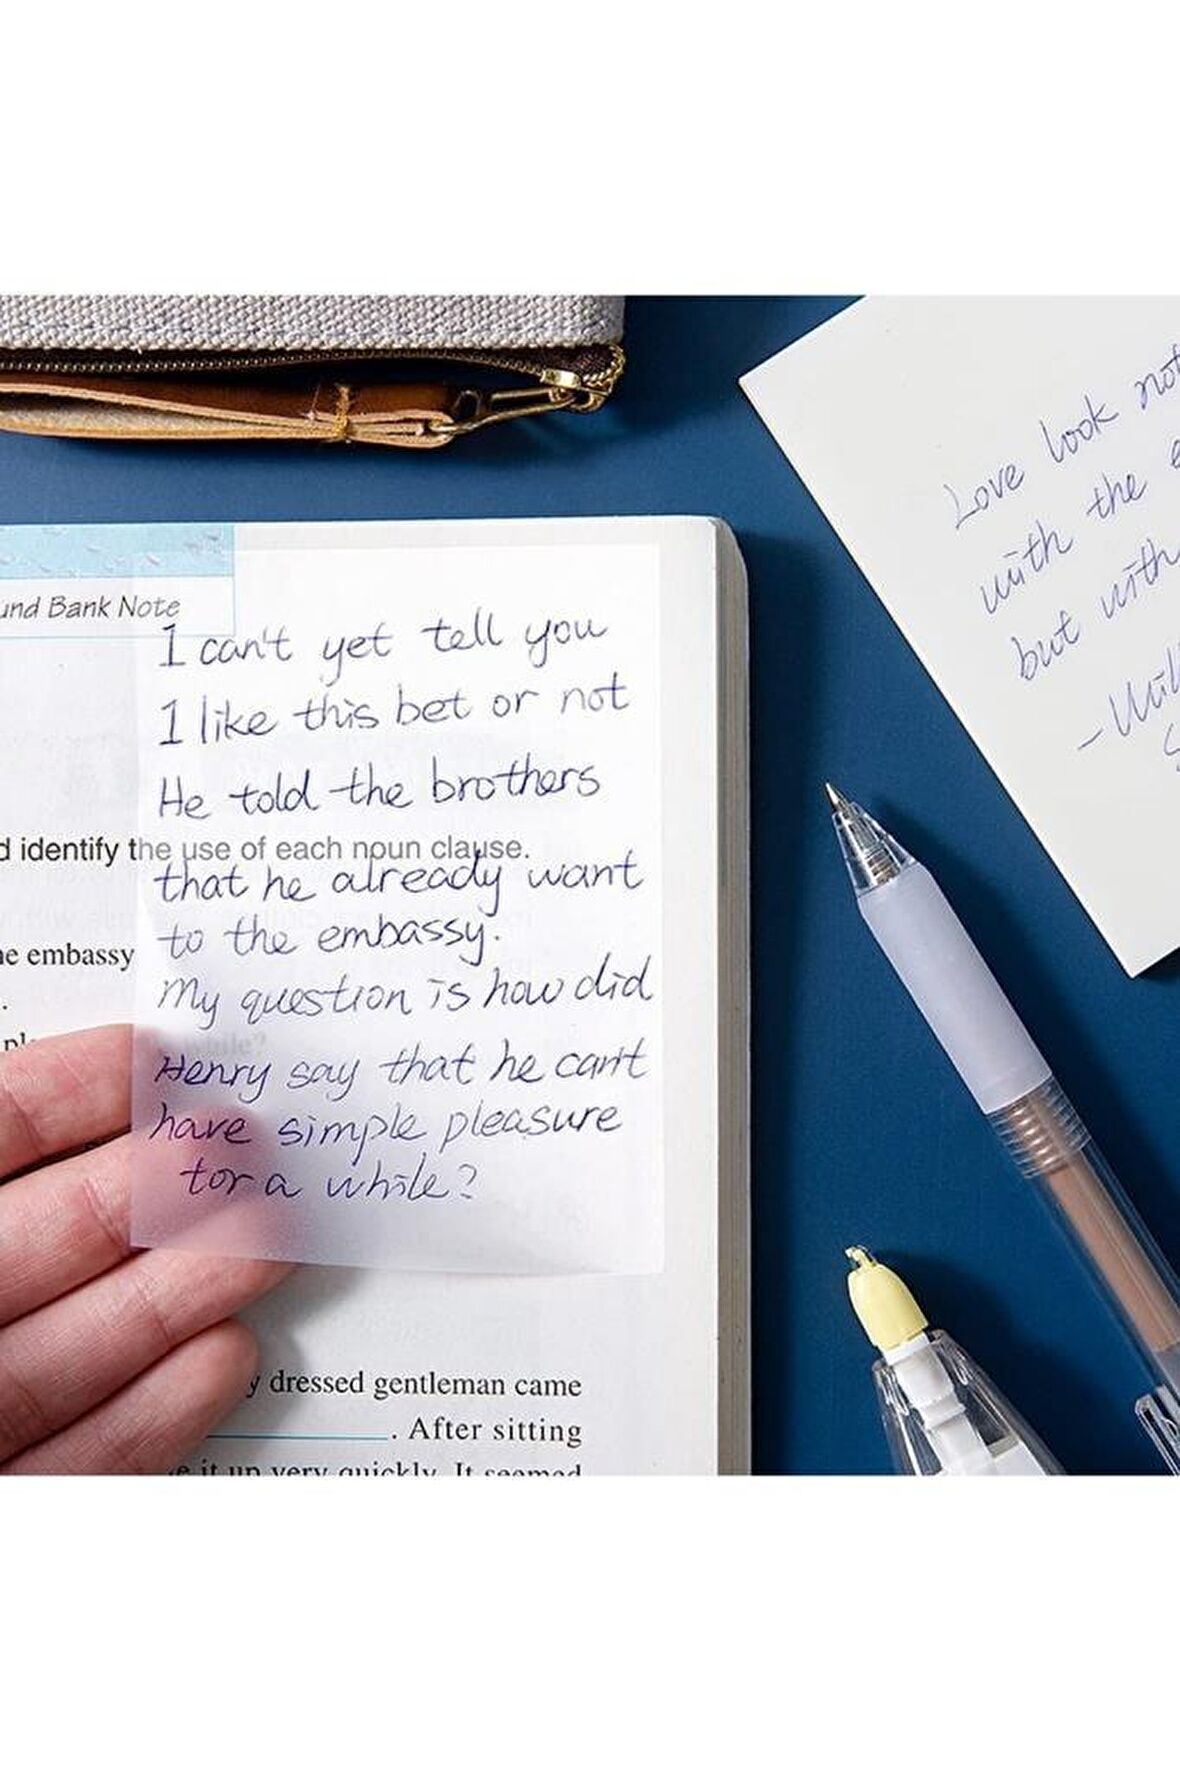 und Bank Note
I can't yet tell you
I like this bet or not
He told the brothers
d identify the use of each noun clause.
that he already want
he embassy
to the embassy.
My question is how did
Henry say that he can't
have simple pleasure
tor a while?
y dressed gentleman came
. After sitting
e it up very quickly. It seemed
Love look not
with the e
but with
-Will
S